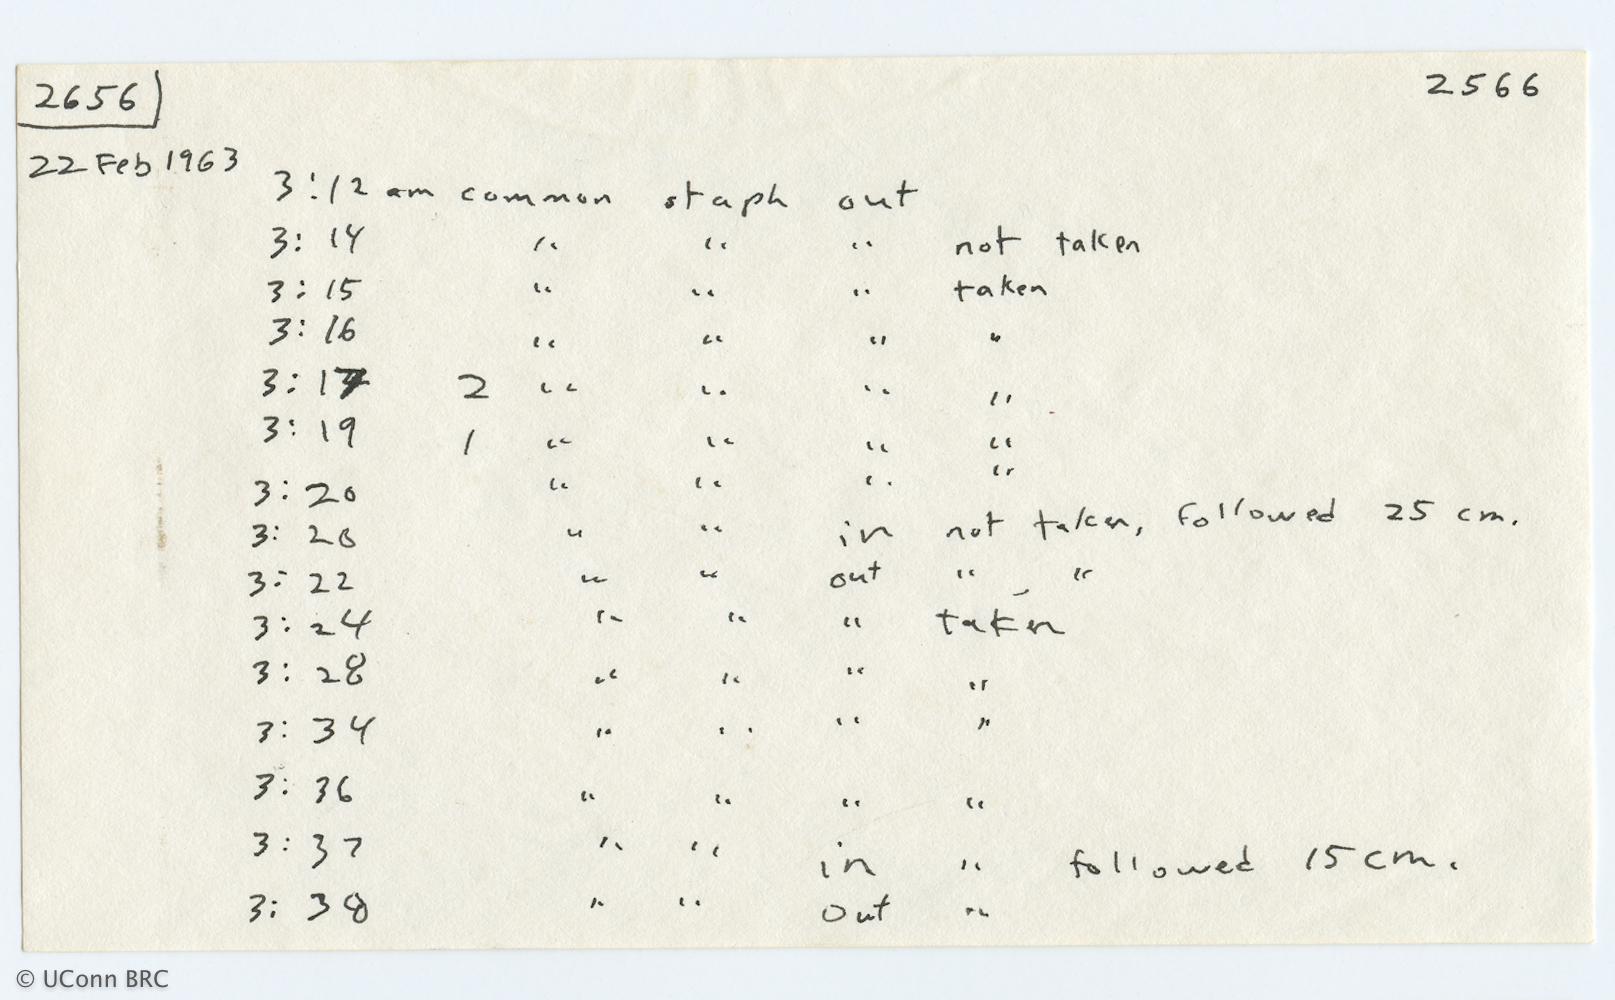 2656 2566
22 Feb 1963
3:12 am common staph out
3:14 " " " not taken
3:15 " " " taken
3:16 " " " "
3:17 2 " " " "
3:19 1 " " " "
3:20 " " " "
3:20 " " in not taken, followed 25 cm.
3:22 " " out " "
3:24 " " " taken
3:28 " " " "
3:34 " " " "
3:36 " " " "
3:37 " " in " followed 15 cm.
3:38 " " out "
© UConn BRC